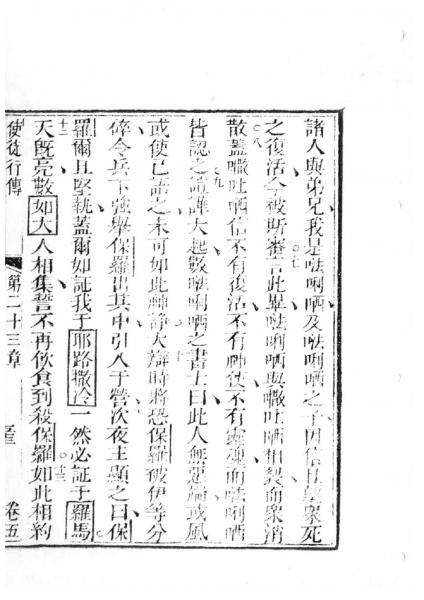 諸人與弟兄我是𠵽唎哂及𠵽唎哂之子因信且望衆死
之復活今被斯審言此畢𠵽唎哂與㗭吐哂相裂而衆消
散蓋㗭吐哂信不有復活不有神使不有靈魂而𠵽唎哂
皆認之諠譁大起數𠵽唎哂之書士曰此人無惡焉或風
或使已語之未可如此靜大辯時將恐保羅被伊等分
碎令兵下強舉保羅出其中引人于營次夜主顯之曰保
羅爾且堅執蓋爾如証我于耶路撒冷一然必証于羅馬
天旣亮數如大人相集誓不再飲食到殺保羅如此相約
使徒行傳 第二十三章 卷五